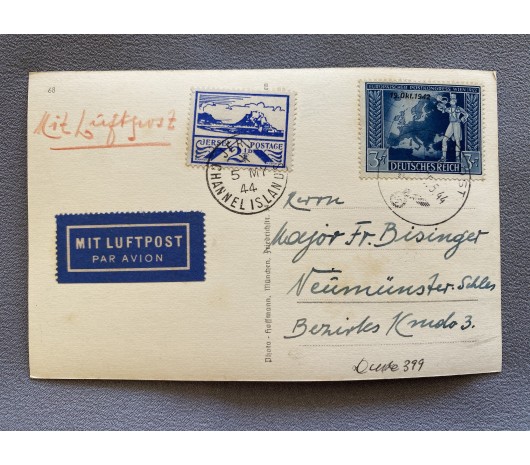 68
Mit Luftpost
MIT LUFTPOST
PAR AVION
JERSEY POSTAGE
JERSEY
5 MY
44
CHANNEL ISLANDS
EUROPÄISCHER POSTKONGRESS WIEN 1942
19. Okt. 1942
3+7 DEUTSCHES REICH 3+7
5.44
Photo-Hoffmann, München,
Herrn
Major Fr. Bisinger
Neumünster-Schles
Bezirks Kmdo 3.
399